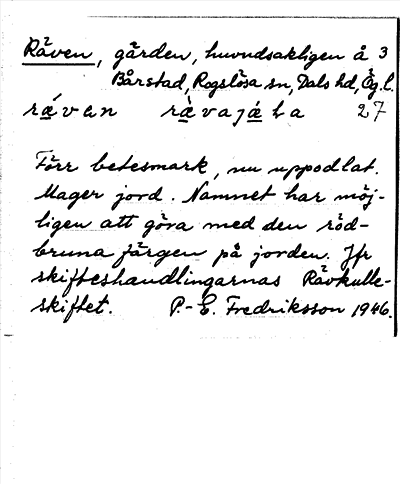 Räven, gärden, huvudsakligen å 3
Bårstad, Rogslösa sn, Dals hd, Ög.l.
rǽvan rævajæla 27
Förr betesmark, nu uppodlat.
Mager jord. Namnet har möj-
ligen att göra med den röd-
bruna färgen på jorden. Jfr
skifteshandlingarnas Rävkulle-
skiftet. P.-E. Fredriksson 1946.